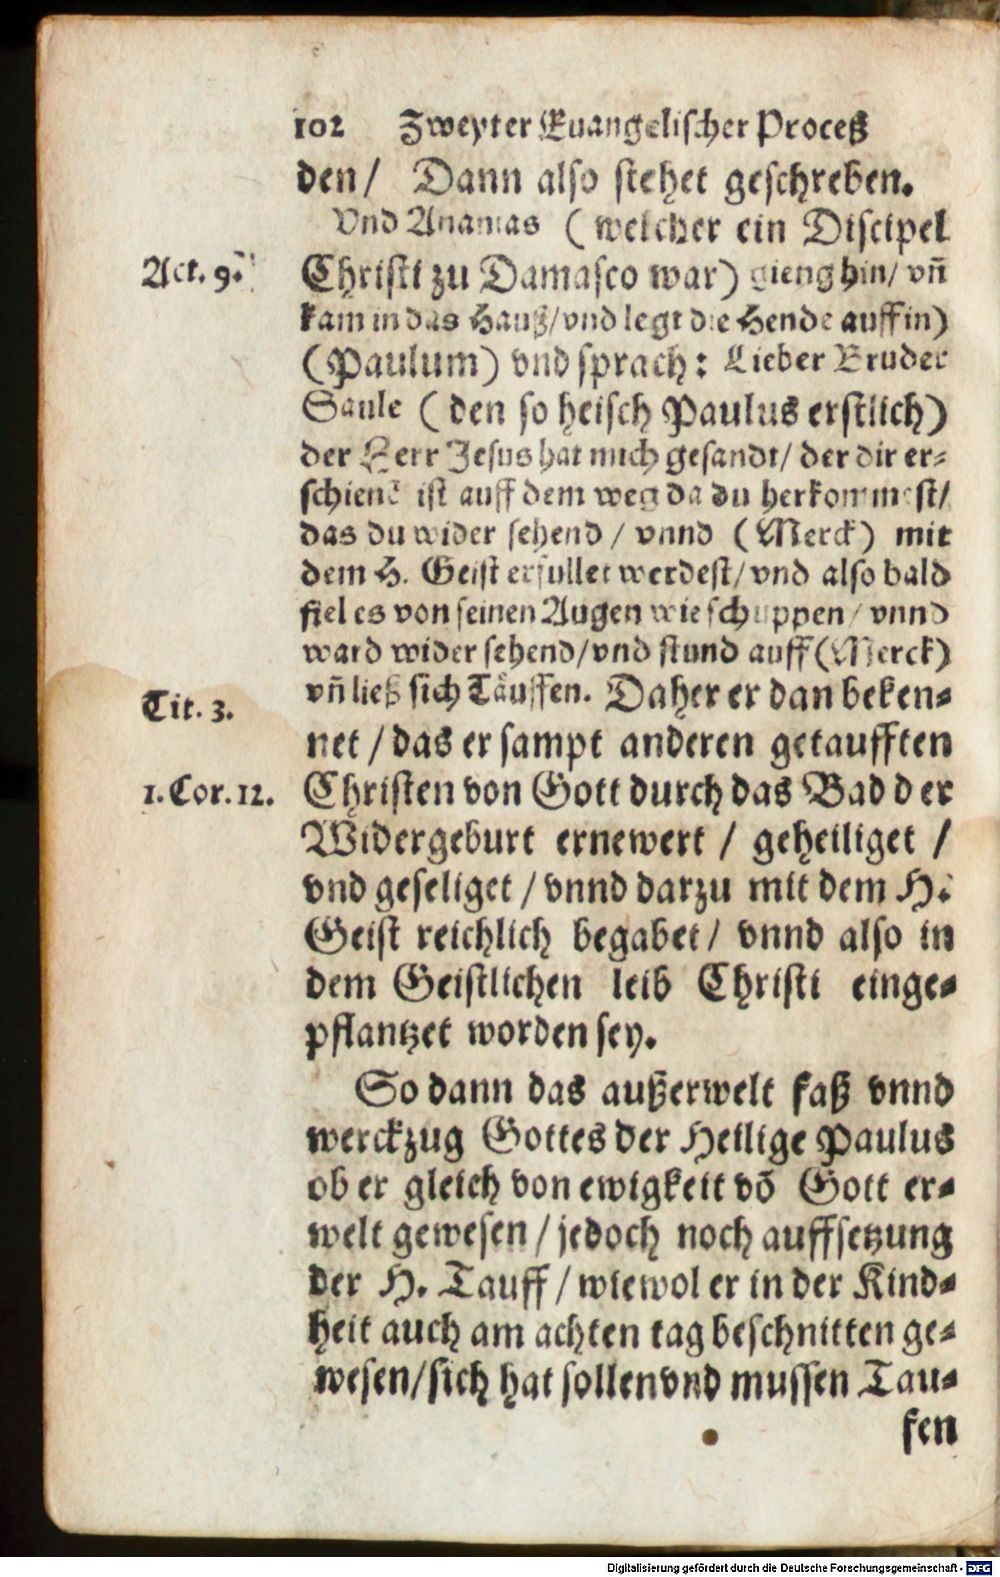 102 Zweyter Euangelischer Proceß
den / Dann also stehet geschreben.
Vnd Ananias ( welcher ein Discipel
Act. 9.
Christi zu Damasco war) gieng hin/ vñ
kam in das Hauß/vnd legt die Hende auff in)
(Paulum) vnd sprach: Lieber Bruder
Saule ( den so heisch Paulus erstlich)
der Herr Jesus hat mich gesandt/ der dir er-
schienē ist auff dem weg da du herkommest/
das du wider sehend / vnnd (Merck) mit
dem H. Geist erfullet werdest/ vnd also bald
fiel es von seinen Augen wie schuppen / vnnd
ward wider sehend/vnd stund auff (Merck)
vñ ließ sich Täuffen. Daher er dan beken-
Tit. 3.
net / das er sampt anderen getaufften
1. Cor. 12.
Christen von Gott durch das Bad der
Widergeburt ernewert / geheiliget /
vnd geseliget / vnnd darzu mit dem H.
Geist reichlich begabet/ vnnd also in
dem Geistlichen leib Christi einge-
pflantzet worden sey.
So dann das außerwelt faß vnnd
werckzug Gottes der Heilige Paulus
ob er gleich von ewigkeit vō Gott er-
welt gewesen / jedoch noch auffsetzung
der H. Tauff / wiewol er in der Kind-
heit auch am achten tag beschnitten ge-
wesen/sich hat sollen vnd mussen Tau-
fen
Digitalisierung gefördert durch die Deutsche Forschungsgemeinschaft - DFG